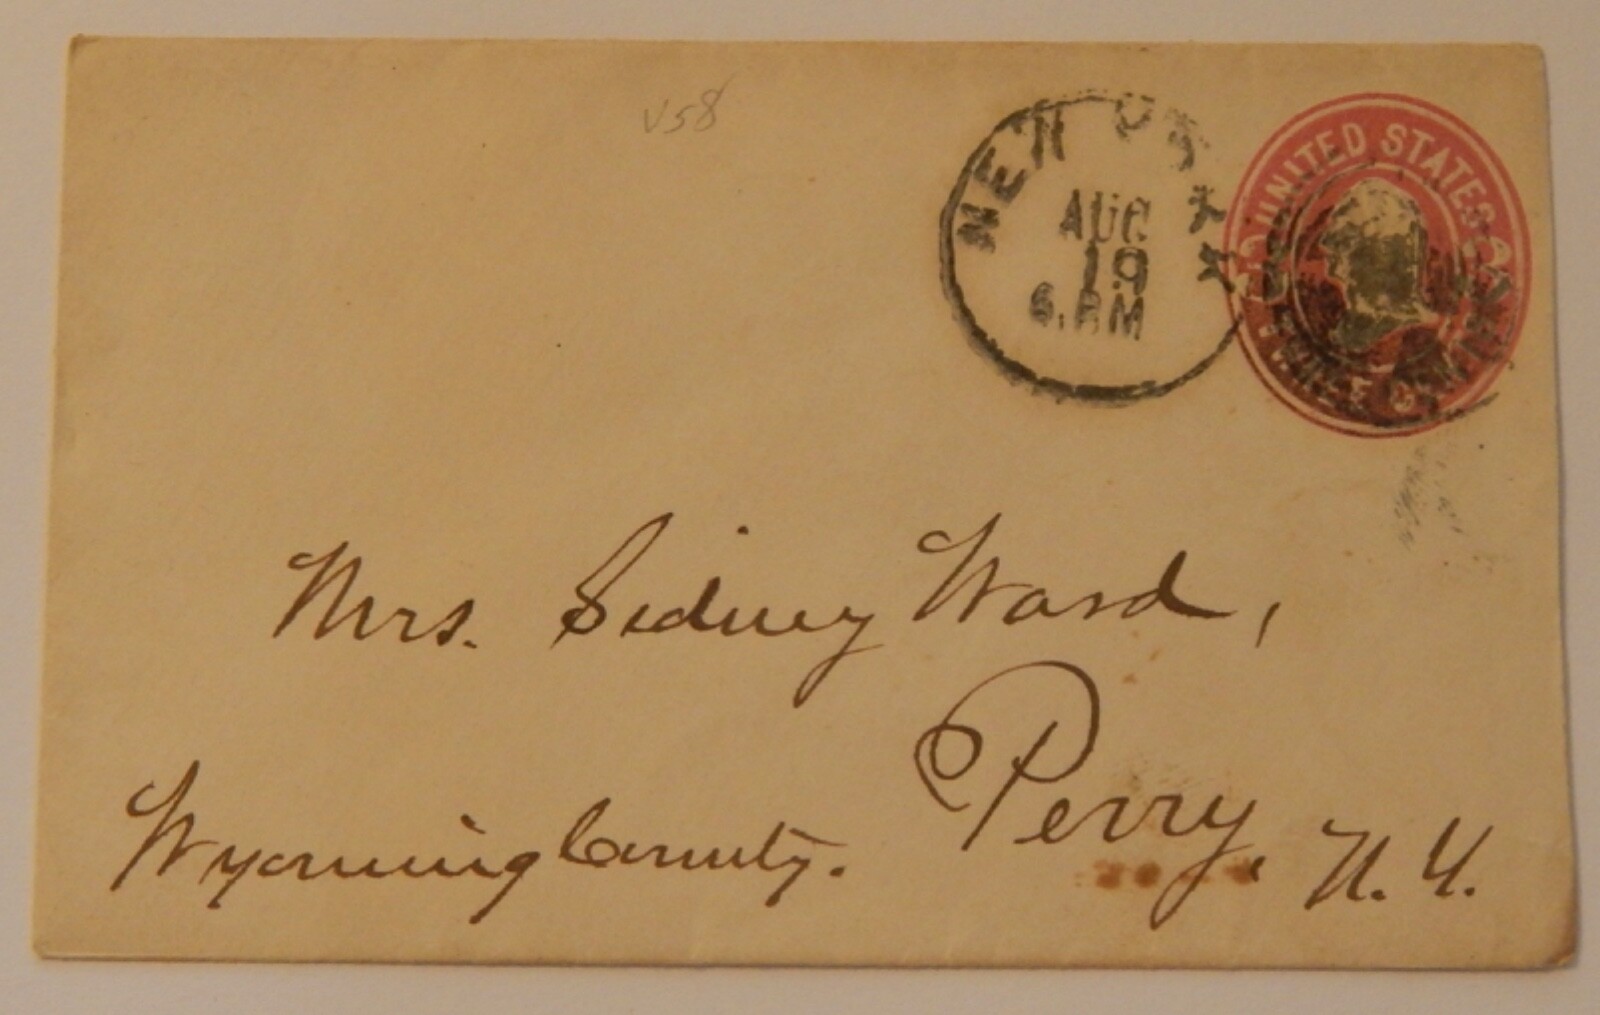 V58
NEW YORK
AUG
19
6. PM
UNITED STATES
THREE CENTS
Mrs. Sidney Ward,
Perry, N. Y.
Wyoming County.